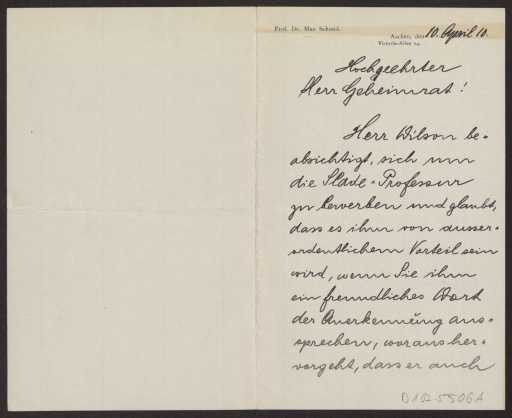 Prof. Dr. Max Schmid.
Aachen, den 10. April 10.
Victoria-Allee 14.
Hochgeehrter
Herr Geheimrat!
Herr Wilson be-
absichtigt, sich um
die Slade-Professur
zu bewerben und glaubt,
dass es ihm von ausser-
ordentlichem Vorteil sein
wird, wenn Sie ihm
ein freundliches Wort
der Anerkennung aus-
sprechen, woraus her-
vorgeht, dass er auch
D 102-5506A